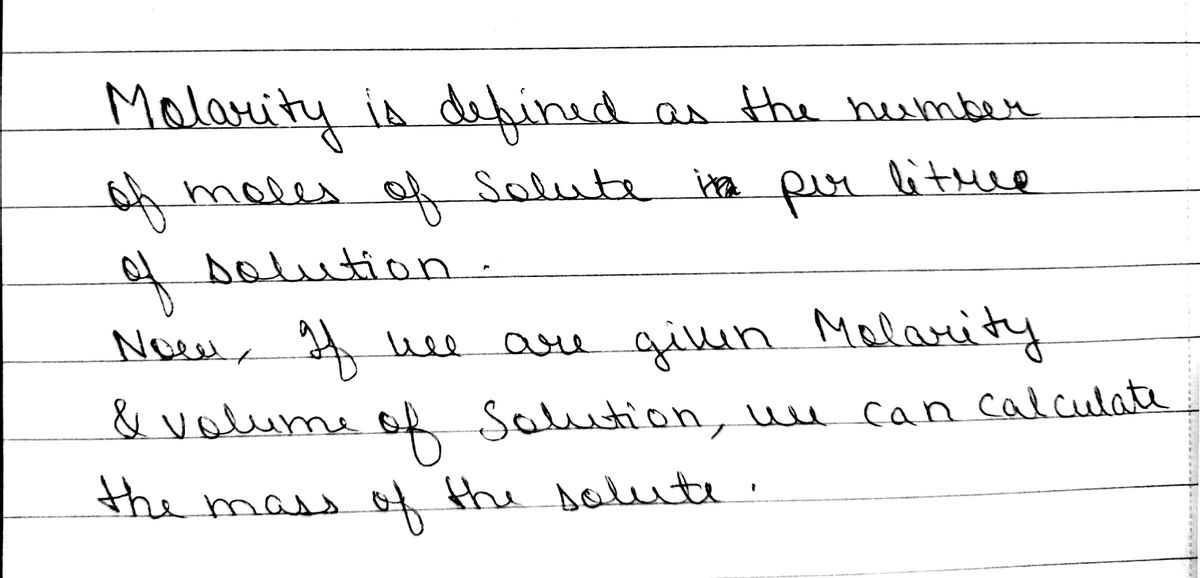 Molarity is defined as the number
of moles of Solute per litre
of solution.
Now, If we are given Molarity
& volume of Solution, we can calculate
the mass of the solute.